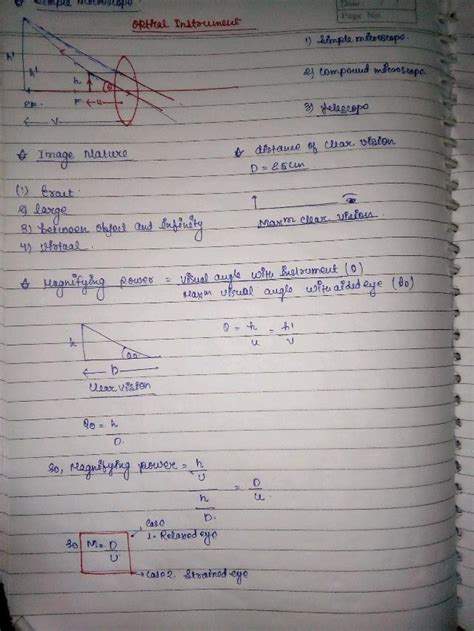 Simple microscope.
Optical Instrument
Date
Page No.
1) Simple microscope
2) Compound microscope
3) Telescope
h'
h'
h
θ
F
u
V
Image Nature
(1) Erect
2) large
3) between object and Infinity
4) virtual.
distance of clear vision
D = 25cm
Maxm clear vision
Magnifying power = visual angle with Instrument (θ)
Maxm visual angle with aided eye (θo)
h
θo
D
clear vision
θ = h/u = h'/v
θo = h/D.
So, Magnifying power = h/U / h/D. = D/u.
So M = D/U
Case
1- Relaxed eye
Case 2. Strained eye